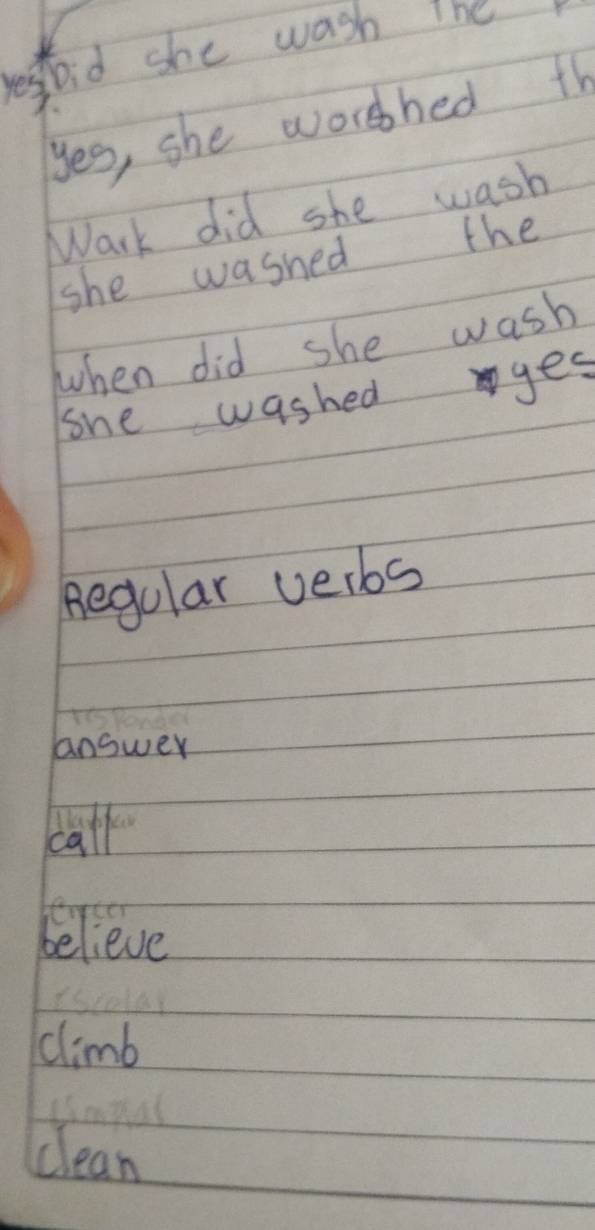 yes Did she wash The
yes, she worshed th
Wark did she wash
she washed the
when did she wash
she washed yes
Regular verbs
responder
answer
llamar
call
creer
believe
escalar
climb
limpiar
clean